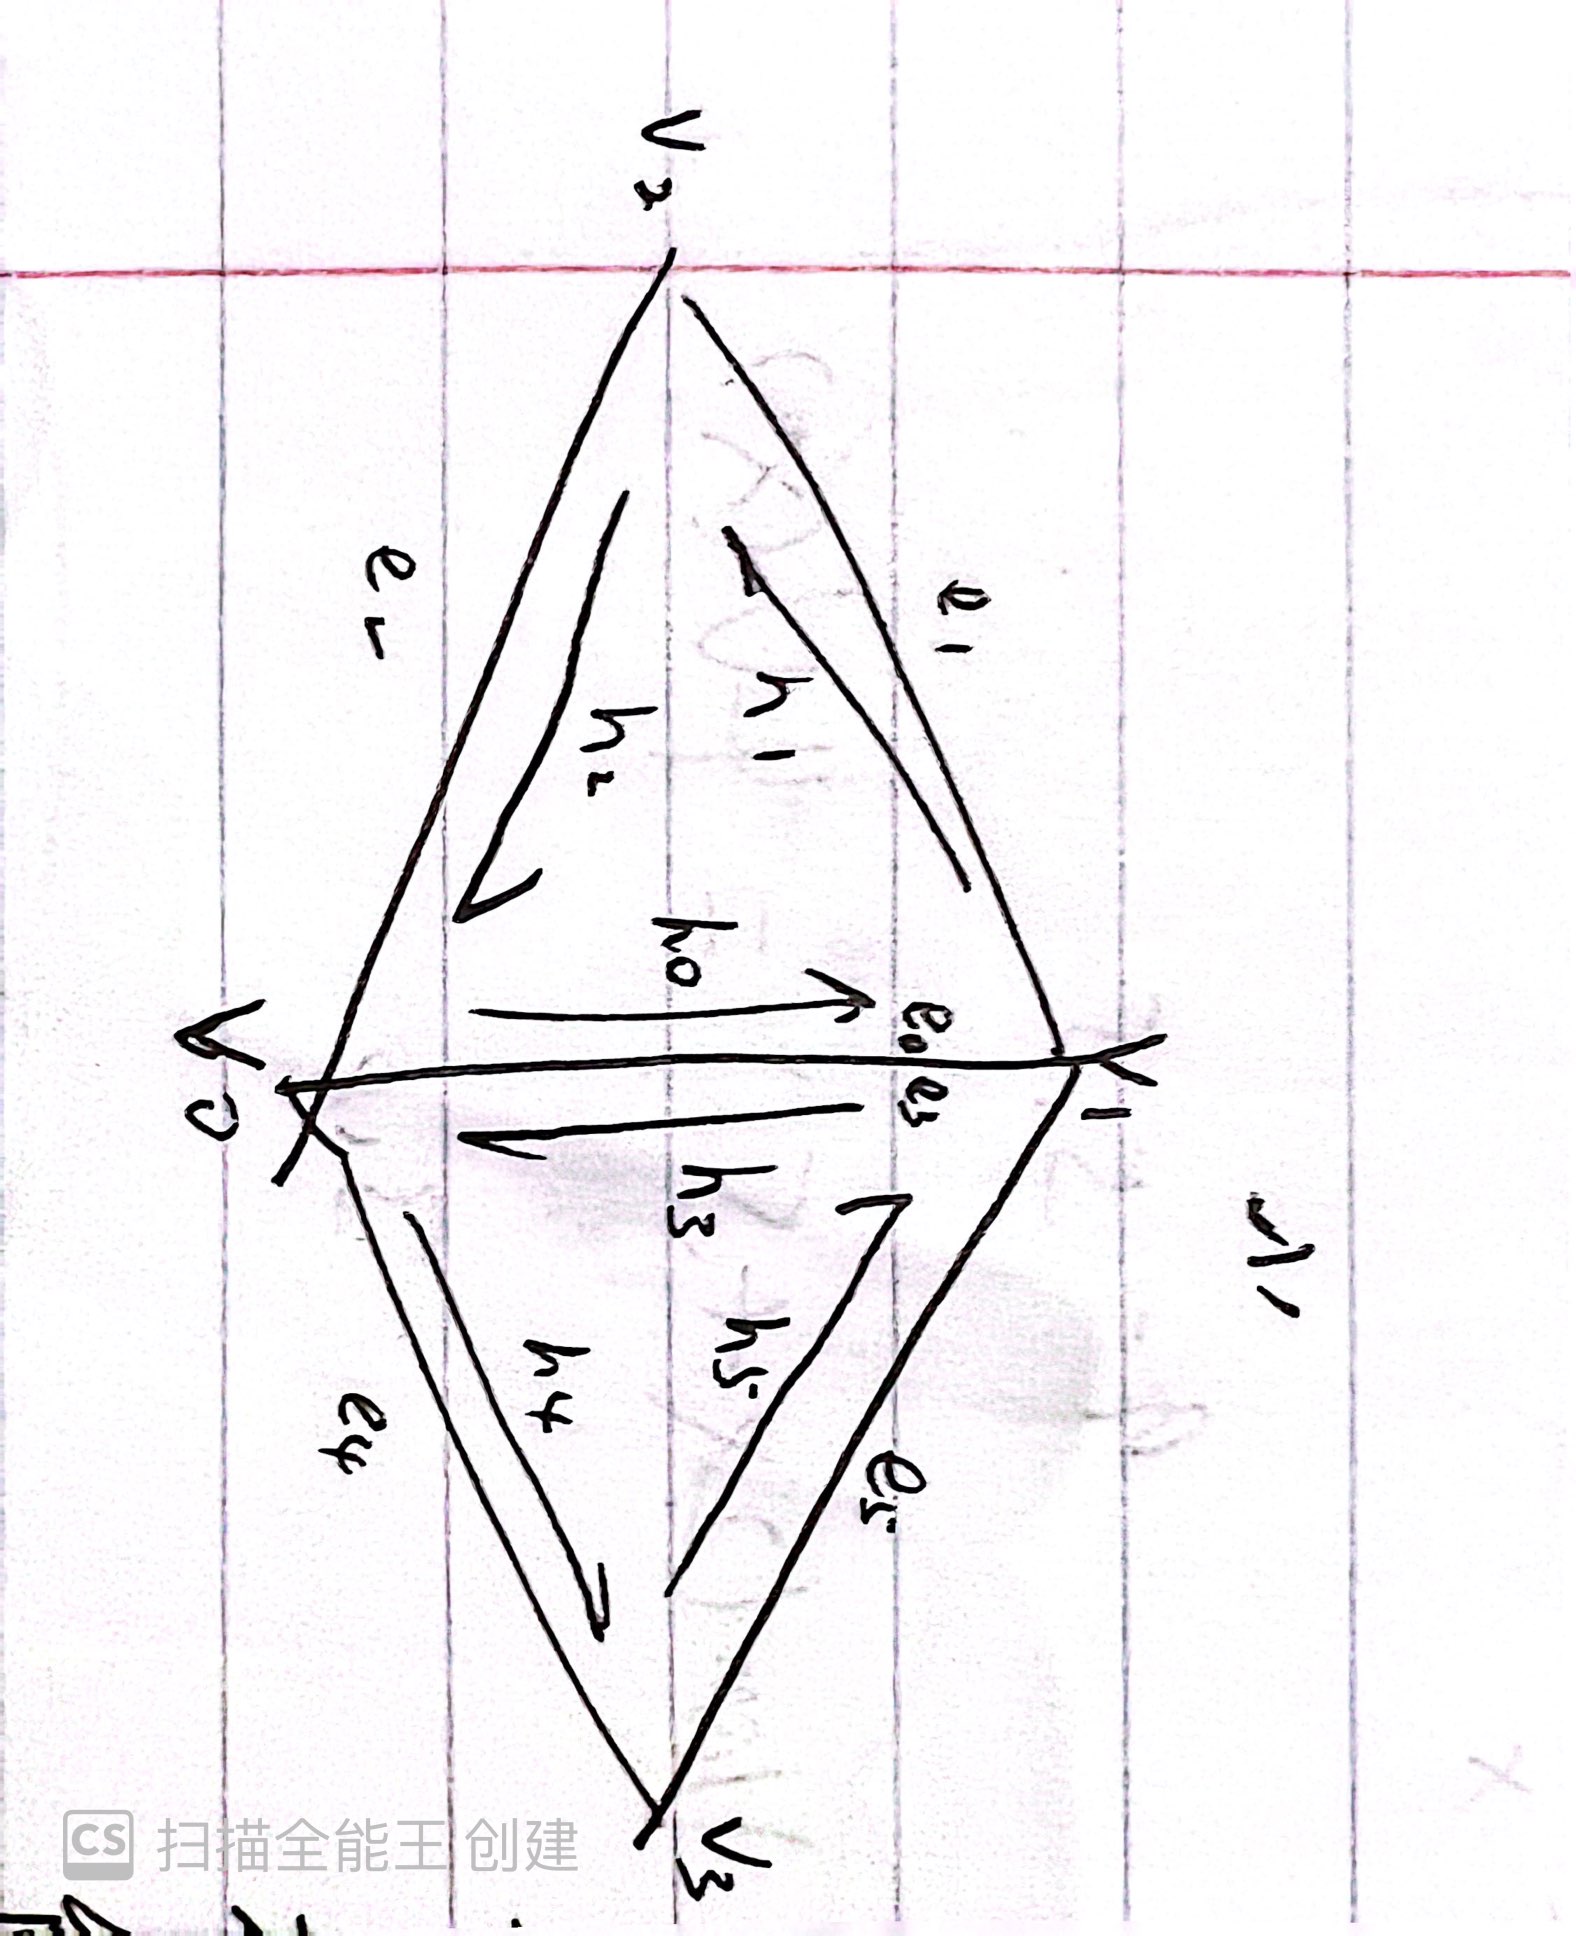 V1
e1
e0 e3
e5
h1
h5
V3
h0
h3
V2
h2
h4
e2
e4
V0
CS 扫描全能王创建